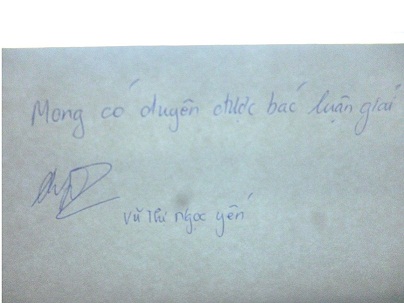 Mong có duyên được bác luận giải
Vũ Thị ngọc yến